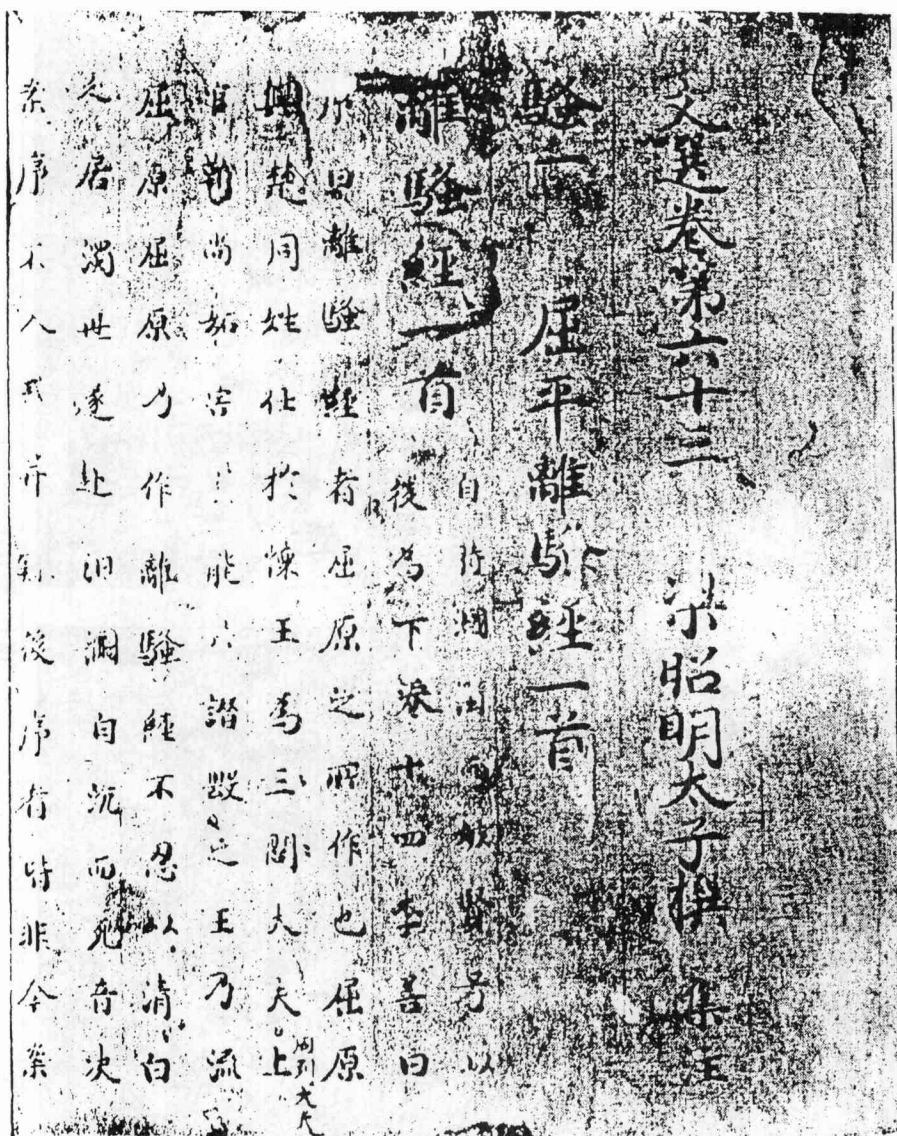 文選卷第六十三 梁昭明太子撰 集注
騷下 屈平離騷經一首
離騷經一首
自 國 賢 以
後為下卷十四李善曰
序曰離騷經者屈原之所作也屈原
與楚同姓仕於懷王為三閭大夫上
官靳尚妬害其能共譖毀之王乃流
屈原屈原乃作離騷經不忍以清白
久居濁世遂赴汨淵自沉而死音決
案序不入或并録後序者皆非今案